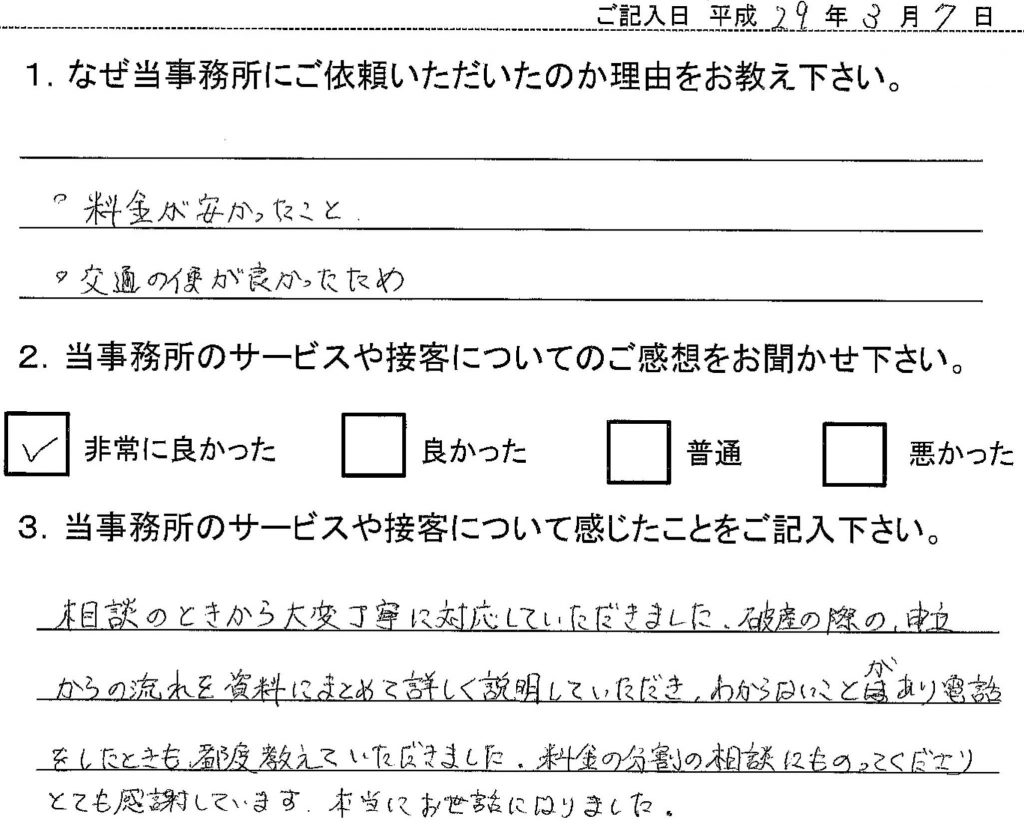 ご記入日 平成 29 年 3 月 7 日
1. なぜ当事務所にご依頼いただいたのか理由をお教え下さい。
。料金が安かったこと.
。交通の便が良かったため
2. 当事務所のサービスや接客についてのご感想をお聞かせ下さい。
✓ 非常に良かった 良かった 普通 悪かった
3. 当事務所のサービスや接客について感じたことをご記入下さい。
相談のときから大変丁寧に対応していただきました。破産の際の、申立
からの流れを資料にまとめて詳しく説明していただき、わからないことがあり電話
をしたときも、都度教えていただきました。料金の分割の相談にものってくださり
とても感謝しています。本当にお世話になりました。